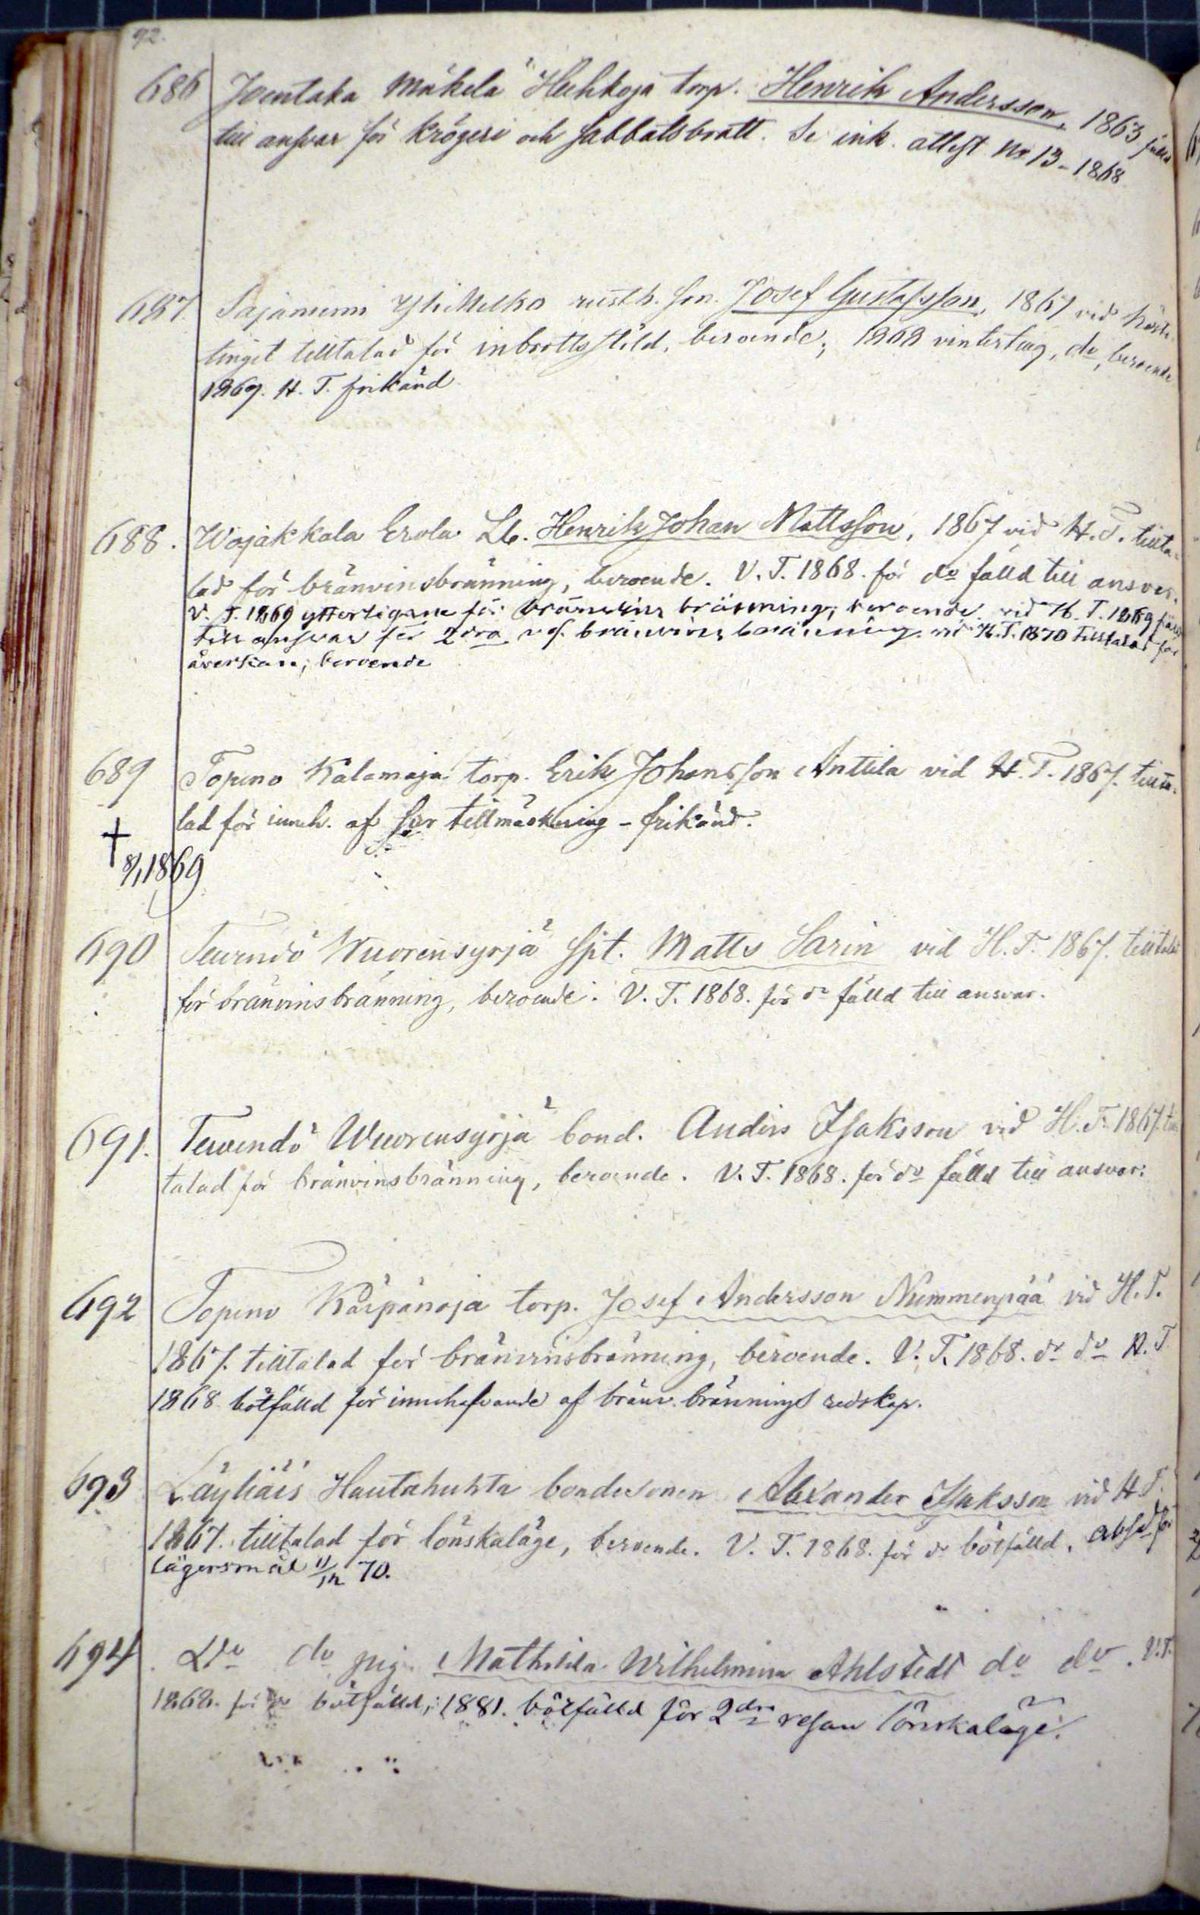 92.
686 Joentaka Mäkelä Huhkoja torp. Henrik Andersson, 1863 fälld
till ansvar för krögeri och sabbatsbrott. Se ink. attest No 13 - 1868
687 Sajaniemi Yli Melko rusth. son. Josef Gustafsson, 1867 vid höste
tinget tilltalad för inbrottsstöld, beroende; 1868 vinterting, do, beroende
1869. H. T. frikänd
688. Wojakkala Erola Lb. Henrik Johan Mattsson, 1867 vid H. T. tillta-
lad för bränvinsbränning, beroende. V. T. 1868. för do fälld till ansvar.
V. T. 1869 ytterligare för bränvins bränning; beroende vid H. T. 1869 fäld
till answar för 2dra resf. bränvins bränning. vid H. T. 1870 tilltalad för
åverkan; beroende
689 Topeno Kalamaja torp. Erik Johansson Anttila vid H. T. 1867. tillta-
lad för inneh. af för tillmäskning - frikänd.
† 8/1 1869
690 Teurndö Wuorensyrjä spt. Matts Sarin vid H. T. 1867. tilltalad
för bränvinsbränning, beroende. V. T. 1868. för do fälld till ansvar.
691. Tervendö Wuorensyrjä bond. Anders Isaksson vid H. T. 1867. till
talad för bränvinsbränning, beroende. V. T. 1868. för do fälld till ansvar.
692 Topeno Kärpänoja torp. Josef Andersson Nummenpää vid H. T.
1867. tilltalad för bränvinsbränning, beroende. V. T. 1868. do do H. T
1868 bötfälld för innehafvande af bränv. brännings redskap.
693 Läyliäis Hautahuhta bondesonen Alexander Isaksson vid H T.
1867. tilltalad för lönskaläge, beroende. V. T. 1868. för do bötfälld. absol för
lägersmål 11/12 70.
694 Do do pig. Mathilda Wilhelmina Ahlstedt do do. V. T.
1868. för do bötfälld; 1881. bötfälld för 2dra resan lönskaläge.